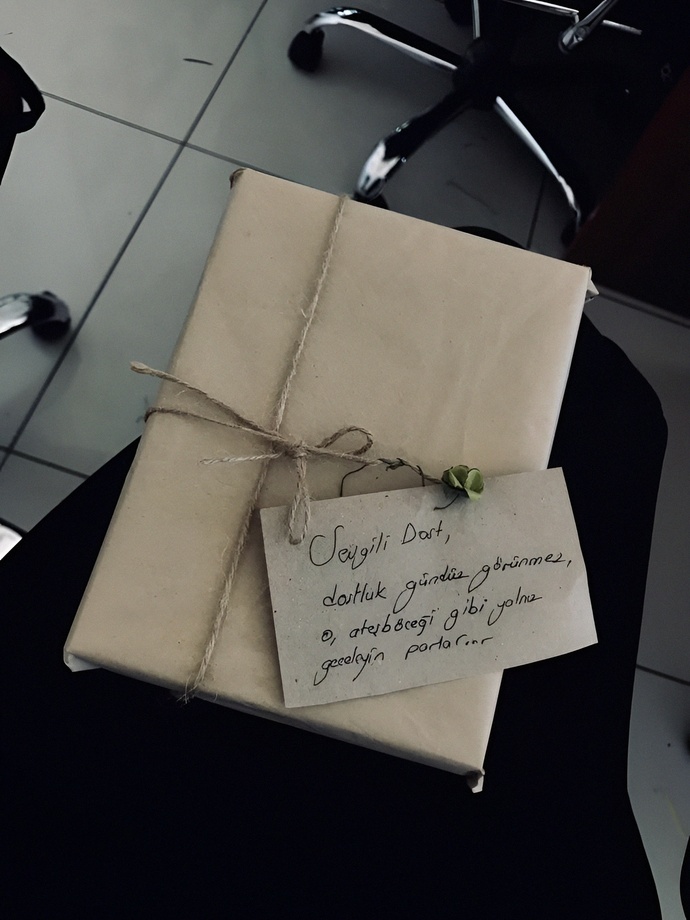 Sevgili Dost,
dostluk gündüz görünmez,
o, ateşböceği gibi yalnız
geceleyin parlar...